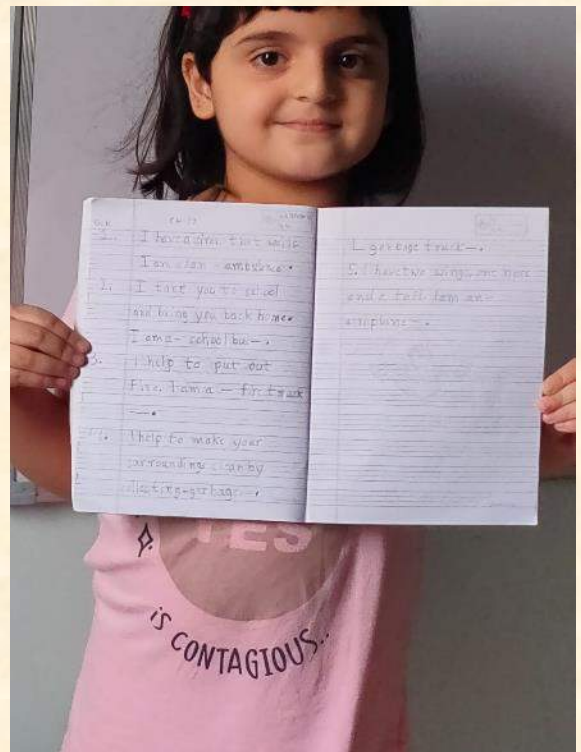 1. I have a siren that wails
I am a/an - ambulance.
2. I take you to school
and bring you back home.
I am a - school bus -.
3. I help to put out
Fire. I am a - fire truck
-.
4. I help to make your
surrounding clean by
collecting - garbage.
I garbage truck -.
5. I have two wings, one nose
and a tail. I am an -
airplane -.
YES
is CONTAGIOUS...